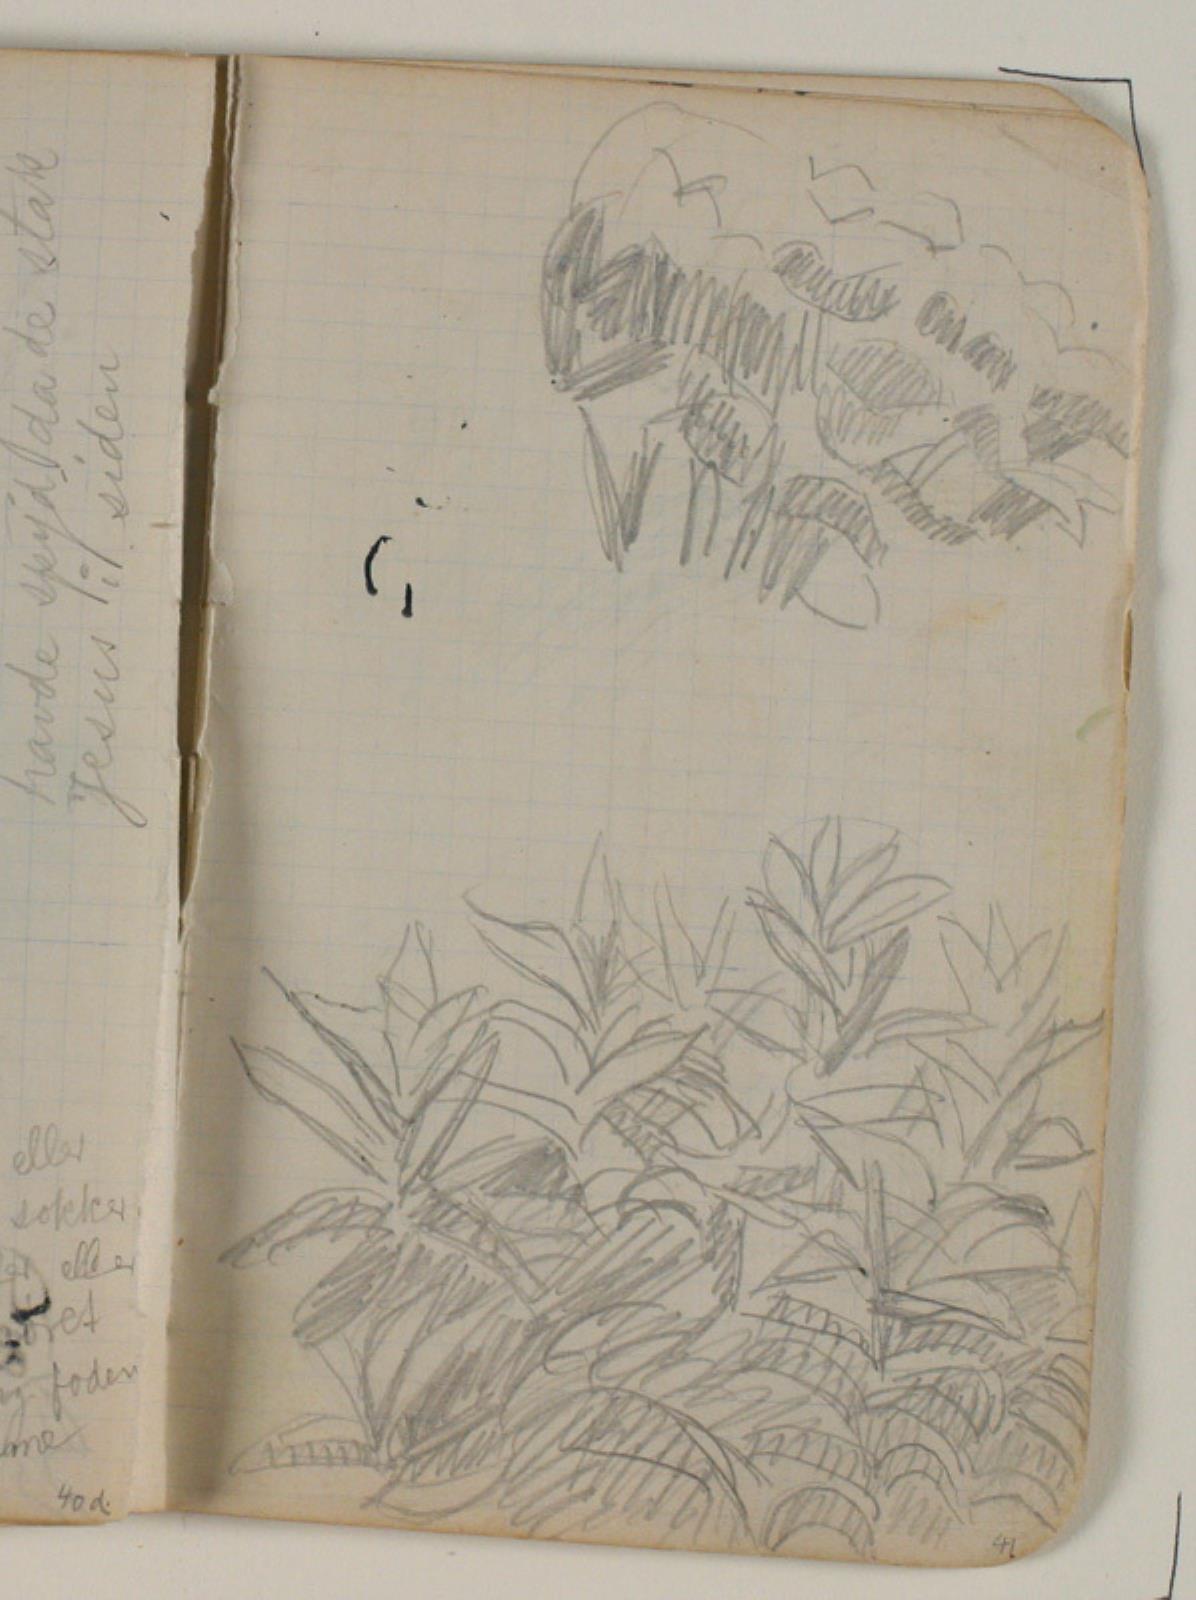 havde spyd da de stak
Jesus i siden
eller
sokker
eller
foden
40 d.
41